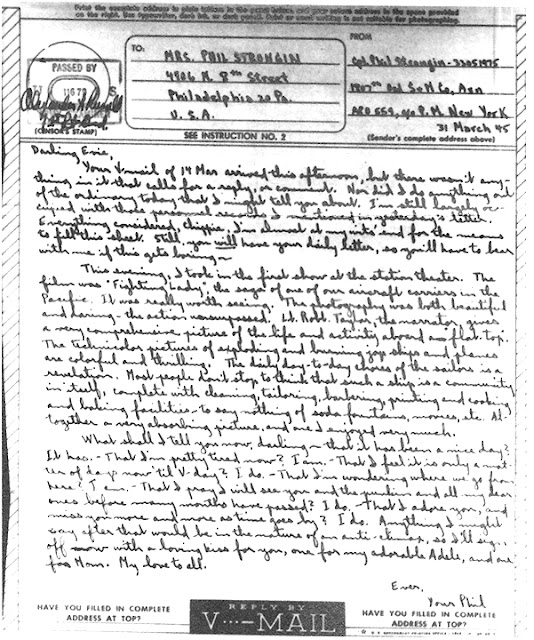 Print the complete address in plain letters in the panel below, and your return address in the space provided
on the right. Use typewriter, dark ink, or dark pencil. Faint or small writing is not suitable for photographing.
PASSED BY
(CENSOR'S STAMP)
TO:
MRS. PHIL STRONGIN
4906 N. 8th Street
Philadelphia 20 Pa.
U.S.A.
SEE INSTRUCTION NO. 2
FROM
Cpl. Phil Strongin - 33051975
1807th Ord S & M Co., Avn
APO 559, c/o P.M. New York
31 March 45
(Sender's complete address above)
Darling Evie,
Your V-mail of 14 Mar arrived this afternoon, but there wasn't any-
thing in it that calls for a reply, or comment. Nor did I do anything out
of the ordinary today that I might tell you about. I'm still largely oc-
cupied with those personnel records I mentioned in yesterday's letter.
Everything considered, Chippie, I'm almost at my wits' end for the means
to fill this sheet. Still, you will have your daily letter, so you'll have to bear
with me if this gets boring—
This evening, I took in the first show at the station theater. The
film was "Fighting Lady", the saga of one of our aircraft carriers in the
Pacific. It was really worth seeing. The photography was both beautiful
and daring - the action unsurpassed. Lt. Robt. Taylor, the narrator, gives
a very comprehensive picture of the life and activity aboard a flat-top.
The technicolor pictures of exploding and burning Jap ships and planes
are colorful and thrilling. The daily day-to-day chores of the sailors is a
revelation. Most people don't stop to think that such a ship is a community
in itself, complete with cleaning, tailoring, barbering, printing and cooking
and baking facilities - to say nothing of soda fountains, movies, etc. Al-
together a very absorbing picture, and one I enjoyed very much.
What shall I tell you now, darling - that it has been a nice day?
It has. - That I'm pretty tired now? I am. - That I feel it is only a mat-
ter of days now 'til V-day? I do. - That I'm wondering where we go from
here? I am. - That I pray I will see you and the punkin and all my dear
ones before many months have passed? I do. - That I adore you, and
miss you more and more as time goes by? I do. Anything I might
say after that would be in the nature of an anti-climax, so I'll sign
off now with a loving kiss for you, one for my adorable Adele, and one
for Mom. My love to all.
Ever,
Your Phil
HAVE YOU FILLED IN COMPLETE
ADDRESS AT TOP?
REPLY BY
V···—MAIL
HAVE YOU FILLED IN COMPLETE
ADDRESS AT TOP?